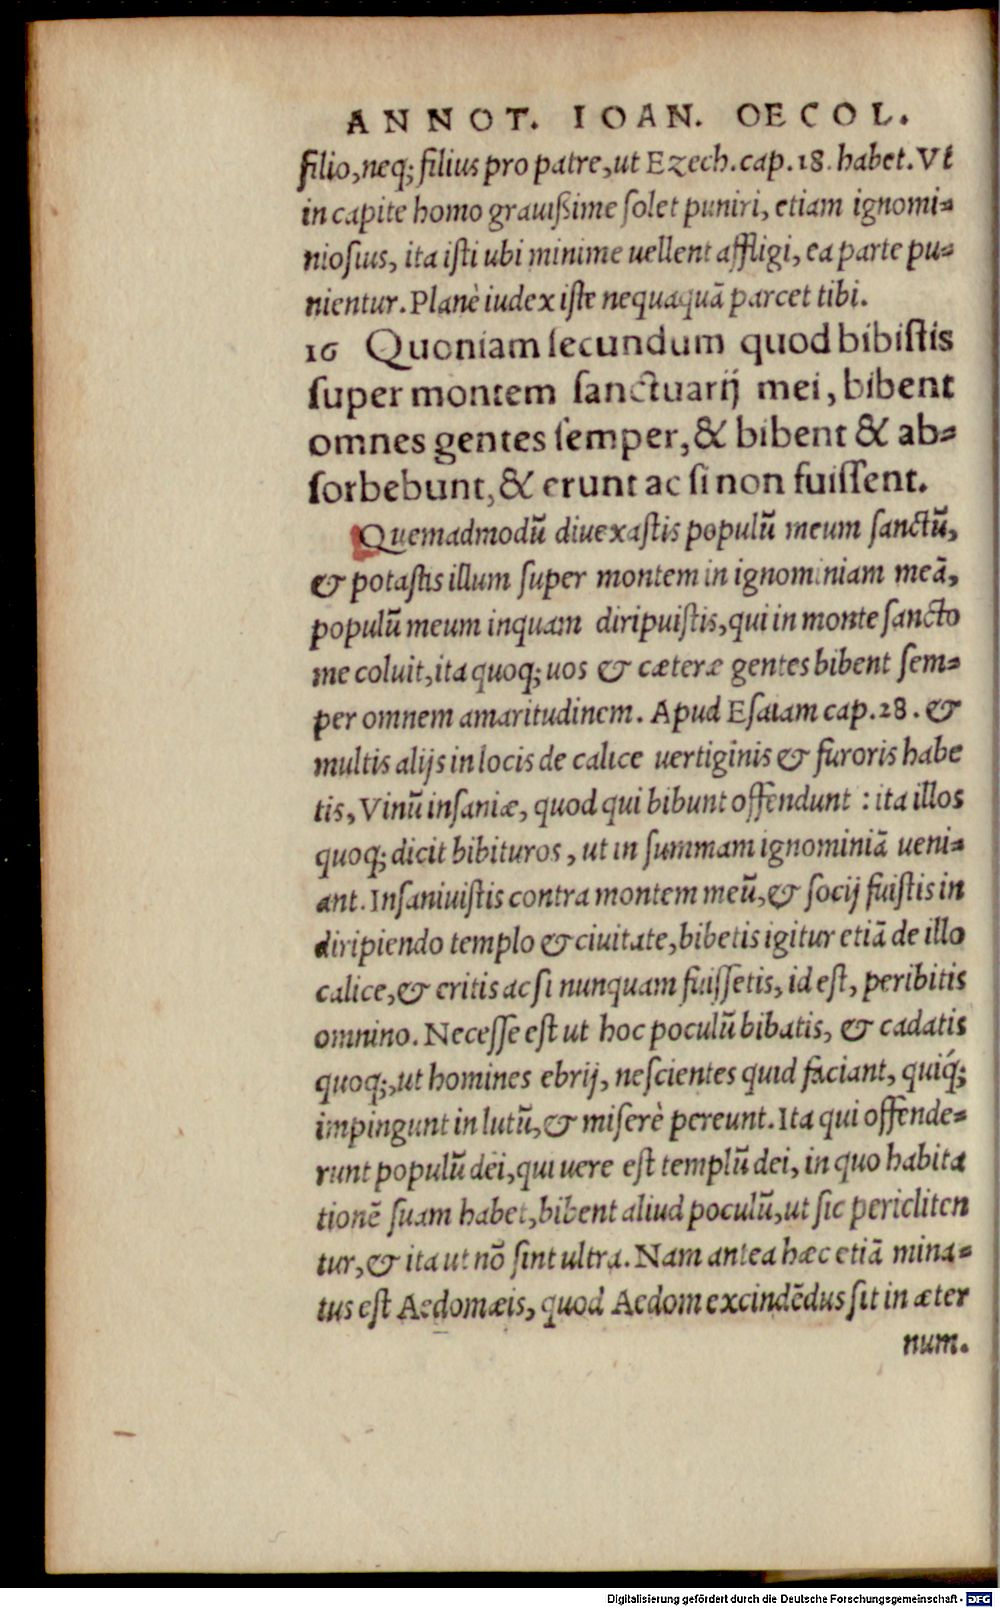 ANNOT. IOAN. OECOL.
filio, neq; filius pro patre, ut Ezech. cap. 18. habet. Vt
in capite homo grauißime ſolet puniri, etiam ignomi-
nioſius, ita iſti ubi minime uellent affligi, ea parte pu-
nientur. Planè iudex iſte nequaquā parcet tibi.
16 Quoniam ſecundum quod bibiſtis
ſuper montem ſanctuarij mei, bibent
omnes gentes ſemper, & bibent & ab-
ſorbebunt, & erunt ac ſi non fuiſſent.
Quemadmodū diuexaſtis populū meum ſanctū,
& potaſtis illum ſuper montem in ignominiam meā,
populū meum inquam diripuiſtis, qui in monte ſancto
me coluit, ita quoq; uos & cæteræ gentes bibent ſem-
per omnem amaritudinem. Apud Eſaiam cap. 28. &
multis alijs in locis de calice uertiginis & furoris habe
tis, Vinū inſaniæ, quod qui bibunt offendunt : ita illos
quoq; dicit bibituros, ut in ſummam ignominiā ueni-
ant. Inſaniuiſtis contra montem meū, & ſocij fuiſtis in
diripiendo templo & ciuitate, bibetis igitur etiā de illo
calice, & eritis ac ſi nunquam fuiſſetis, id eſt, peribitis
omnino. Neceſſe eſt ut hoc poculū bibatis, & cadatis
quoq;, ut homines ebrij, neſcientes quid faciant, quiq́;
impingunt in lutū, & miſerè pereunt. Ita qui offende-
runt populū dei, qui uere eſt templū dei, in quo habita
tionē ſuam habet, bibent aliud poculū, ut ſic pericliten
tur, & ita ut nō ſint ultra. Nam antea hæc etiā mina-
tus eſt Aedomæis, quod Aedom excindēdus ſit in æter
num.
Digitalisierung gefördert durch die Deutsche Forschungsgemeinschaft - DFG